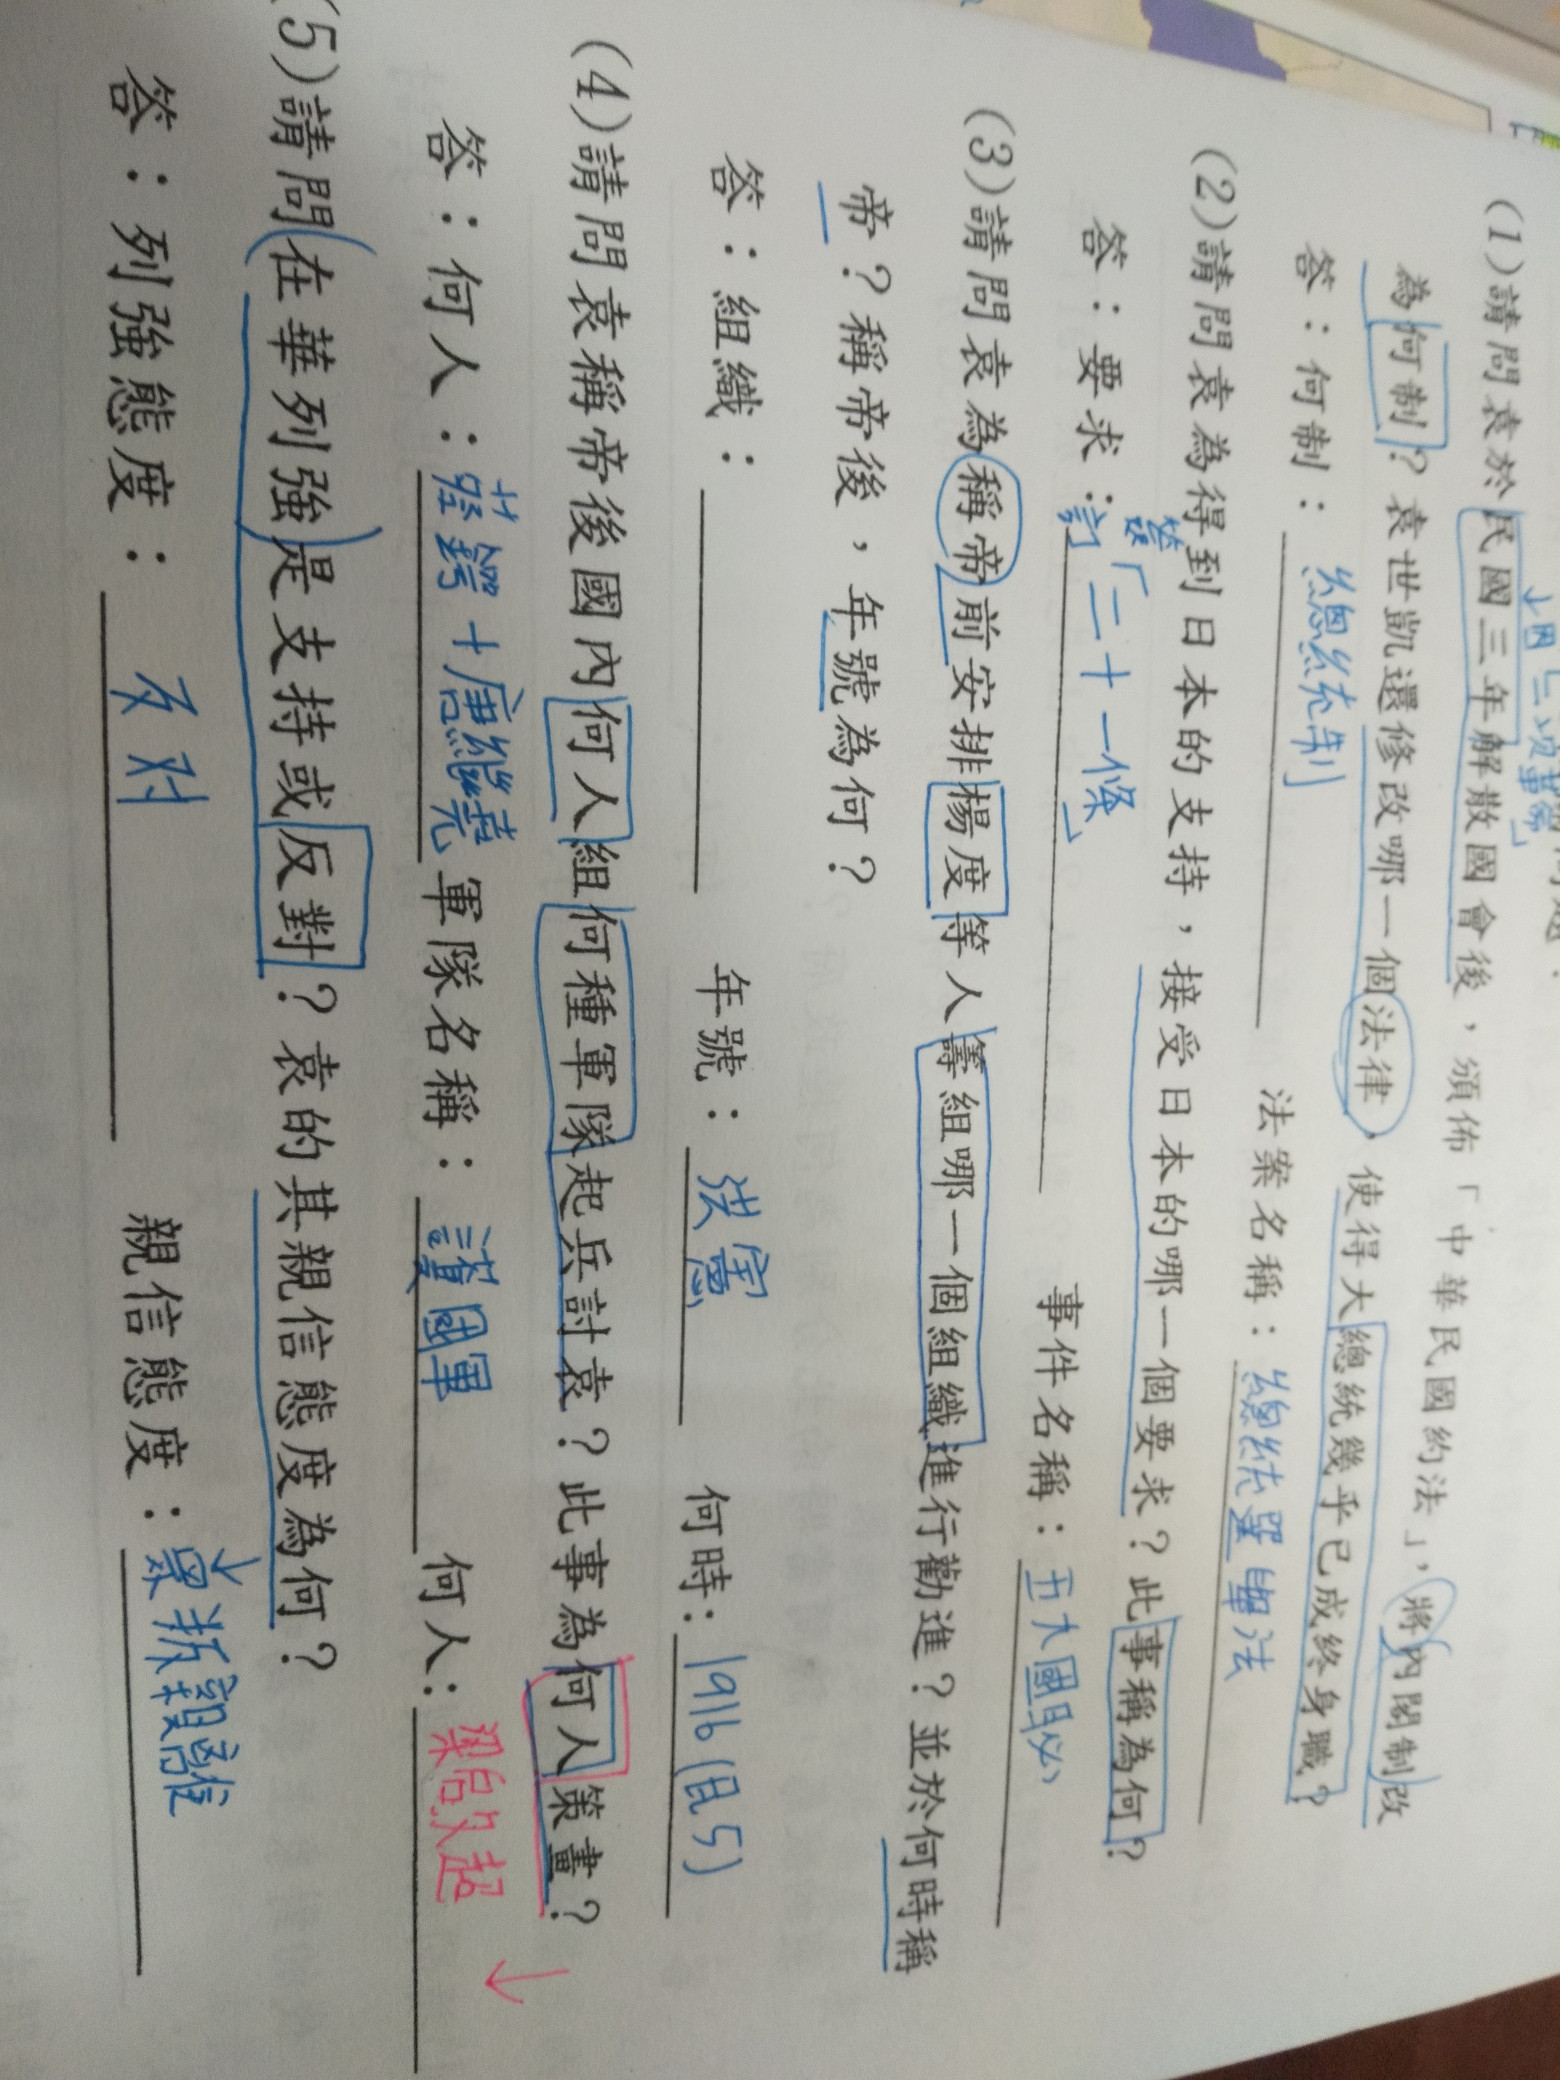 (1)請問袁於民國三年解散國會後，頒佈「中華民國約法」，將內閣制改
為何制？袁世凱還修改哪一個法律，使得大總統幾乎已成終身職？
答：何制：總統制 法案名稱：總統選舉法
(2)請問袁為得到日本的支持，接受日本的哪一個要求？此事稱為何？
答：要求：簽訂「二十一條」 事件名稱：五九國恥
(3)請問袁為稱帝前安排楊度等人籌組哪一個組織進行勸進？並於何時稱
帝？稱帝後，年號為何？
答：組織： 年號：洪憲 何時：1916(民5)
(4)請問袁稱帝後國內何人組何種軍隊起兵討袁？此事為何人策畫？
答：何人：蔡鍔+唐繼堯 軍隊名稱：護國軍 何人：梁啟超
(5)請問在華列強是支持或反對？袁的其親信態度為何？
答：列強態度：反對 親信態度：眾叛親離